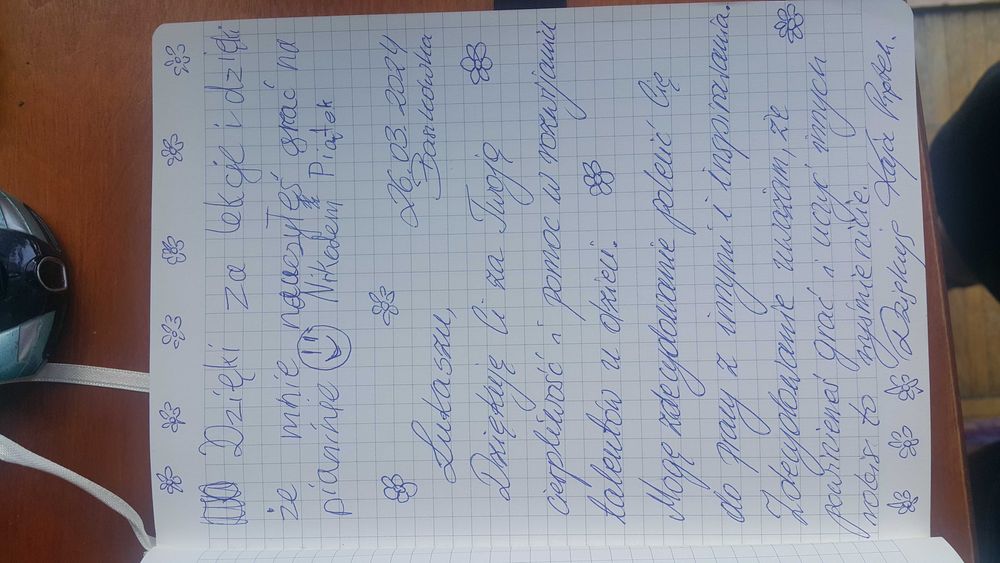 Dzięki za lekcje i dzięki
że mnie nauczyłeś grać na
pianinie Nikodem Piątek
26.03.2024
Bańkówka
Łukaszu,
Dziękuję Ci za Twoją
cierpliwość i pomoc w rozwijaniu
talentów u dzieci.
Mogę zdecydowanie polecić Cię
do pracy z innymi i inspirowania.
Zdecydowanie uważam, że
powinieneś grać i uczyć innych
robisz to wyśmienicie.
Dziękuję Kaja Piątek.